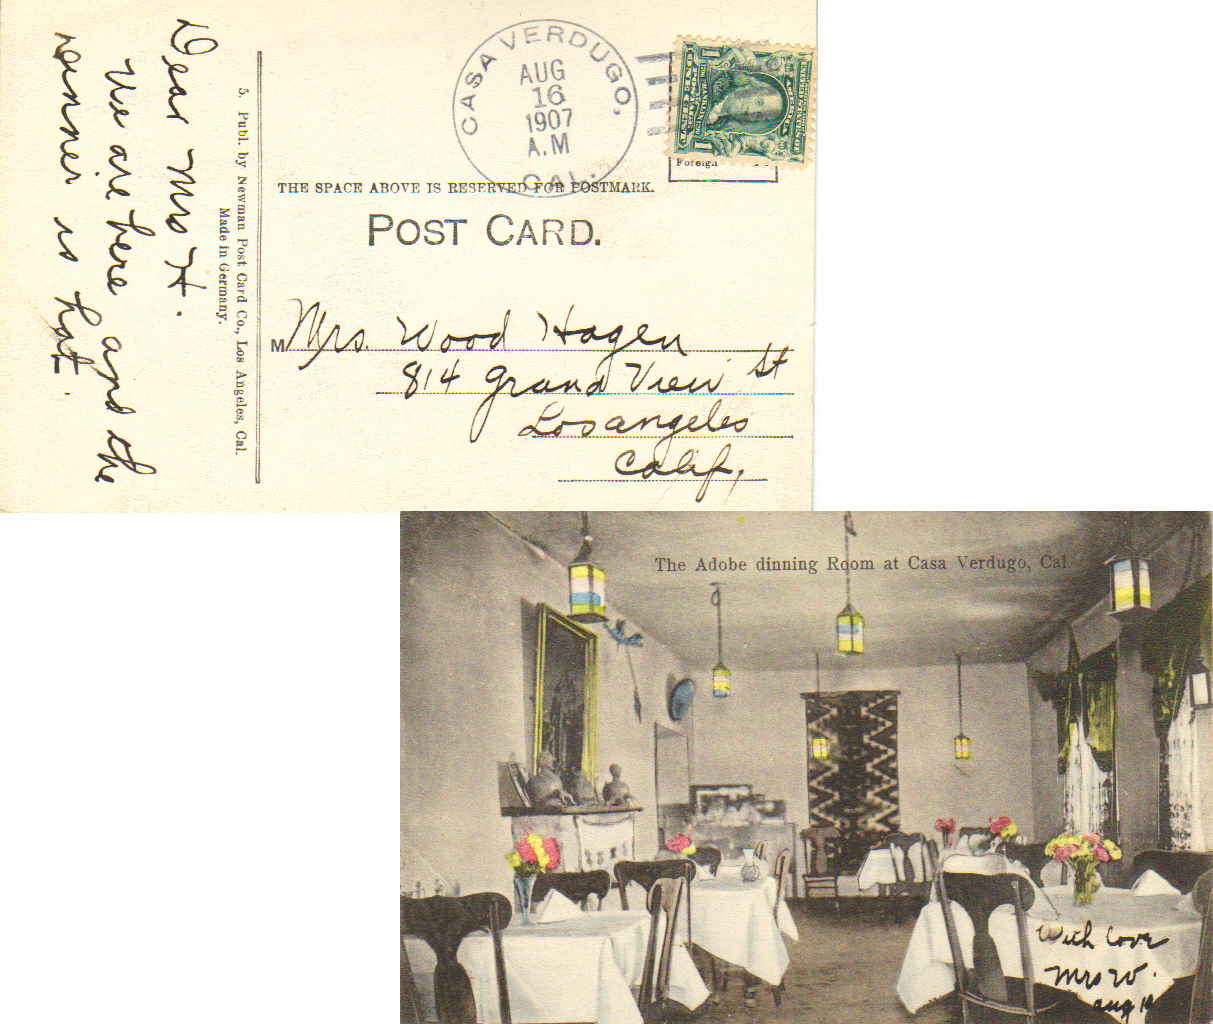 Dear Mrs H.
We are here and the
dinner is hot.
5. Publ. by Newman Post Card Co., Los Angeles, Cal.
Made in Germany.
CASA VERDUGO,
AUG
16
1907
A.M
CAL.
Foreign
THE SPACE ABOVE IS RESERVED FOR POSTMARK.
POST CARD.
M Mrs. Wood Hagen
814 Grand View St
Los angeles
Calif,
The Adobe dinning Room at Casa Verdugo, Cal
With love
Mrs W.
aug